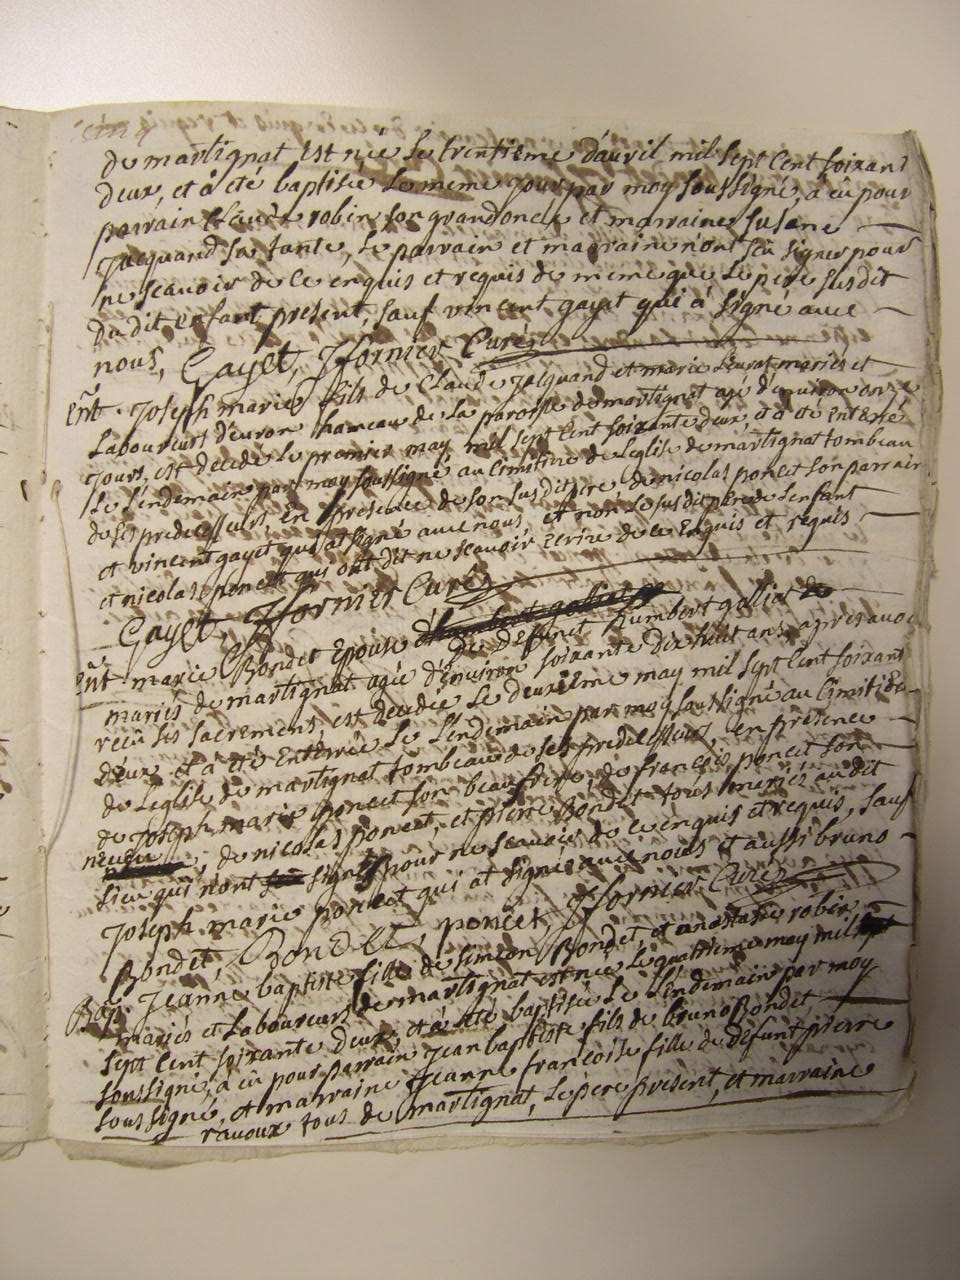 de martignat est née le trentieme d'avril mil sept cent soixant
deux, et a été baptisée le meme jour par moy soussigné, a eü pour
parrain Claude robin son grandoncle et marraine susane
jacquand sa tante, le parrain et marraine n'ont sçu signer pour
ne scavoir de ce enquis et requis de meme que le pere susdit
du dit enfant present, sauf vincent gayet qui a signé avec
nous, Gayet, Jfornier Curé
Ent. Joseph marie fils de Claude jacquand et marie levrat mariés et
Laboureurs d'evron hameau de la paroisse de martignat agé d'environ onze
jours, est decedé le premier may mil sept cent soixante deux, et a été enterré
le l'endemain par moy soussigné au cimitiere de l'eglise de martignat tombeau
de ses predecesseurs, en presence de son susdit pere, de nicolas poncet son parrain
et vincent gayet qui at signé avec nous, et non le susdit pere de l'enfant
et nicolas poncet qui ont dit ne scavoir ecrire de ce enquis et requis
Gayet, Jfornier Curé
Ent. marie Bondet Epouse de defunct humbert golliat
mariés de martignat agée d'environ soixante dix huit ans, apres avoir
reçu ses sacrements, est decedée le deuxieme may mil sept cent soixant
deux et a été enterrée le l'endemain par moy soussigné au cimitiere
de l'eglise de martignat tombeau de ses predecesseurs, en presence
de joseph marie poncet son beaufrere, de francois poncet son
neveu, de nicolas poncet, et pierre Bondet tous mariés au dit
lieu qui n'ont signé pour ne scavoir de ce enquis et requis, sauf
joseph marie poncet qui at signé avec nous et aussi bruno
Bondet, Bondet, poncet, Jfornier Curé
Bap. Jeanne baptiste fille de simeon Bondet, et anastasie robin
mariés et Laboureurs de martignat est née le quatrieme may mil
sept cent soixante deux et a été baptisée le l'endemain par moy
soussigné, a eü pour parrain jean baptiste fils de bruno Bondet
soussigné, et marraine Jeanne francoise fille de defunt pierre
ravoux tous de martignat, le pere present, et marraine